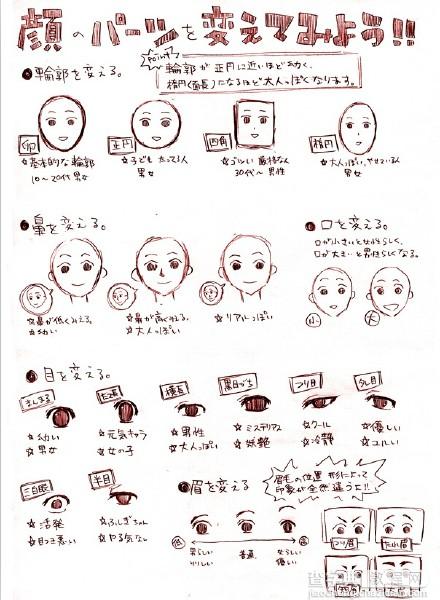 顔のパーツを変えてみよう!!
輪郭を変える。
POINT!
輪郭が正円に近いほど幼く、
楕円(面長)になるほど大人っぽくなります。
卵
☆基本的な輪郭
10~20代男女
正円
☆子ども 太ってる人
男女
四角
☆ゴツい 厳格な人
30代~男性
楕円
☆大人っぽい、やせている人
男女
鼻を変える。
☆鼻が低くみえる。
☆幼い
☆鼻が高くみえる。
☆大人っぽい
☆リアルっぽい
口を変える。
口が小さいと女性らしく、
口が大きいと男性らしくなる。
小
大
目を変える。
まんまる
☆幼い
☆男女
たて長
☆元気キャラ
☆女の子
横長
☆男性
☆大人っぽい
黒目がち
☆ミステリアス
☆妖艶
つり目
☆クール
☆冷静
タレ目
☆優しい
☆ユルい
三白眼
☆活発
☆目つき悪い
半目
☆ふしぎちゃん
☆やる気なし
眉を変える
眉毛の位置・形によって
印象が全然違うよ!!
低
高
男らしい
りりしい
普通
女らしい
優しい
つり眉
たれ眉